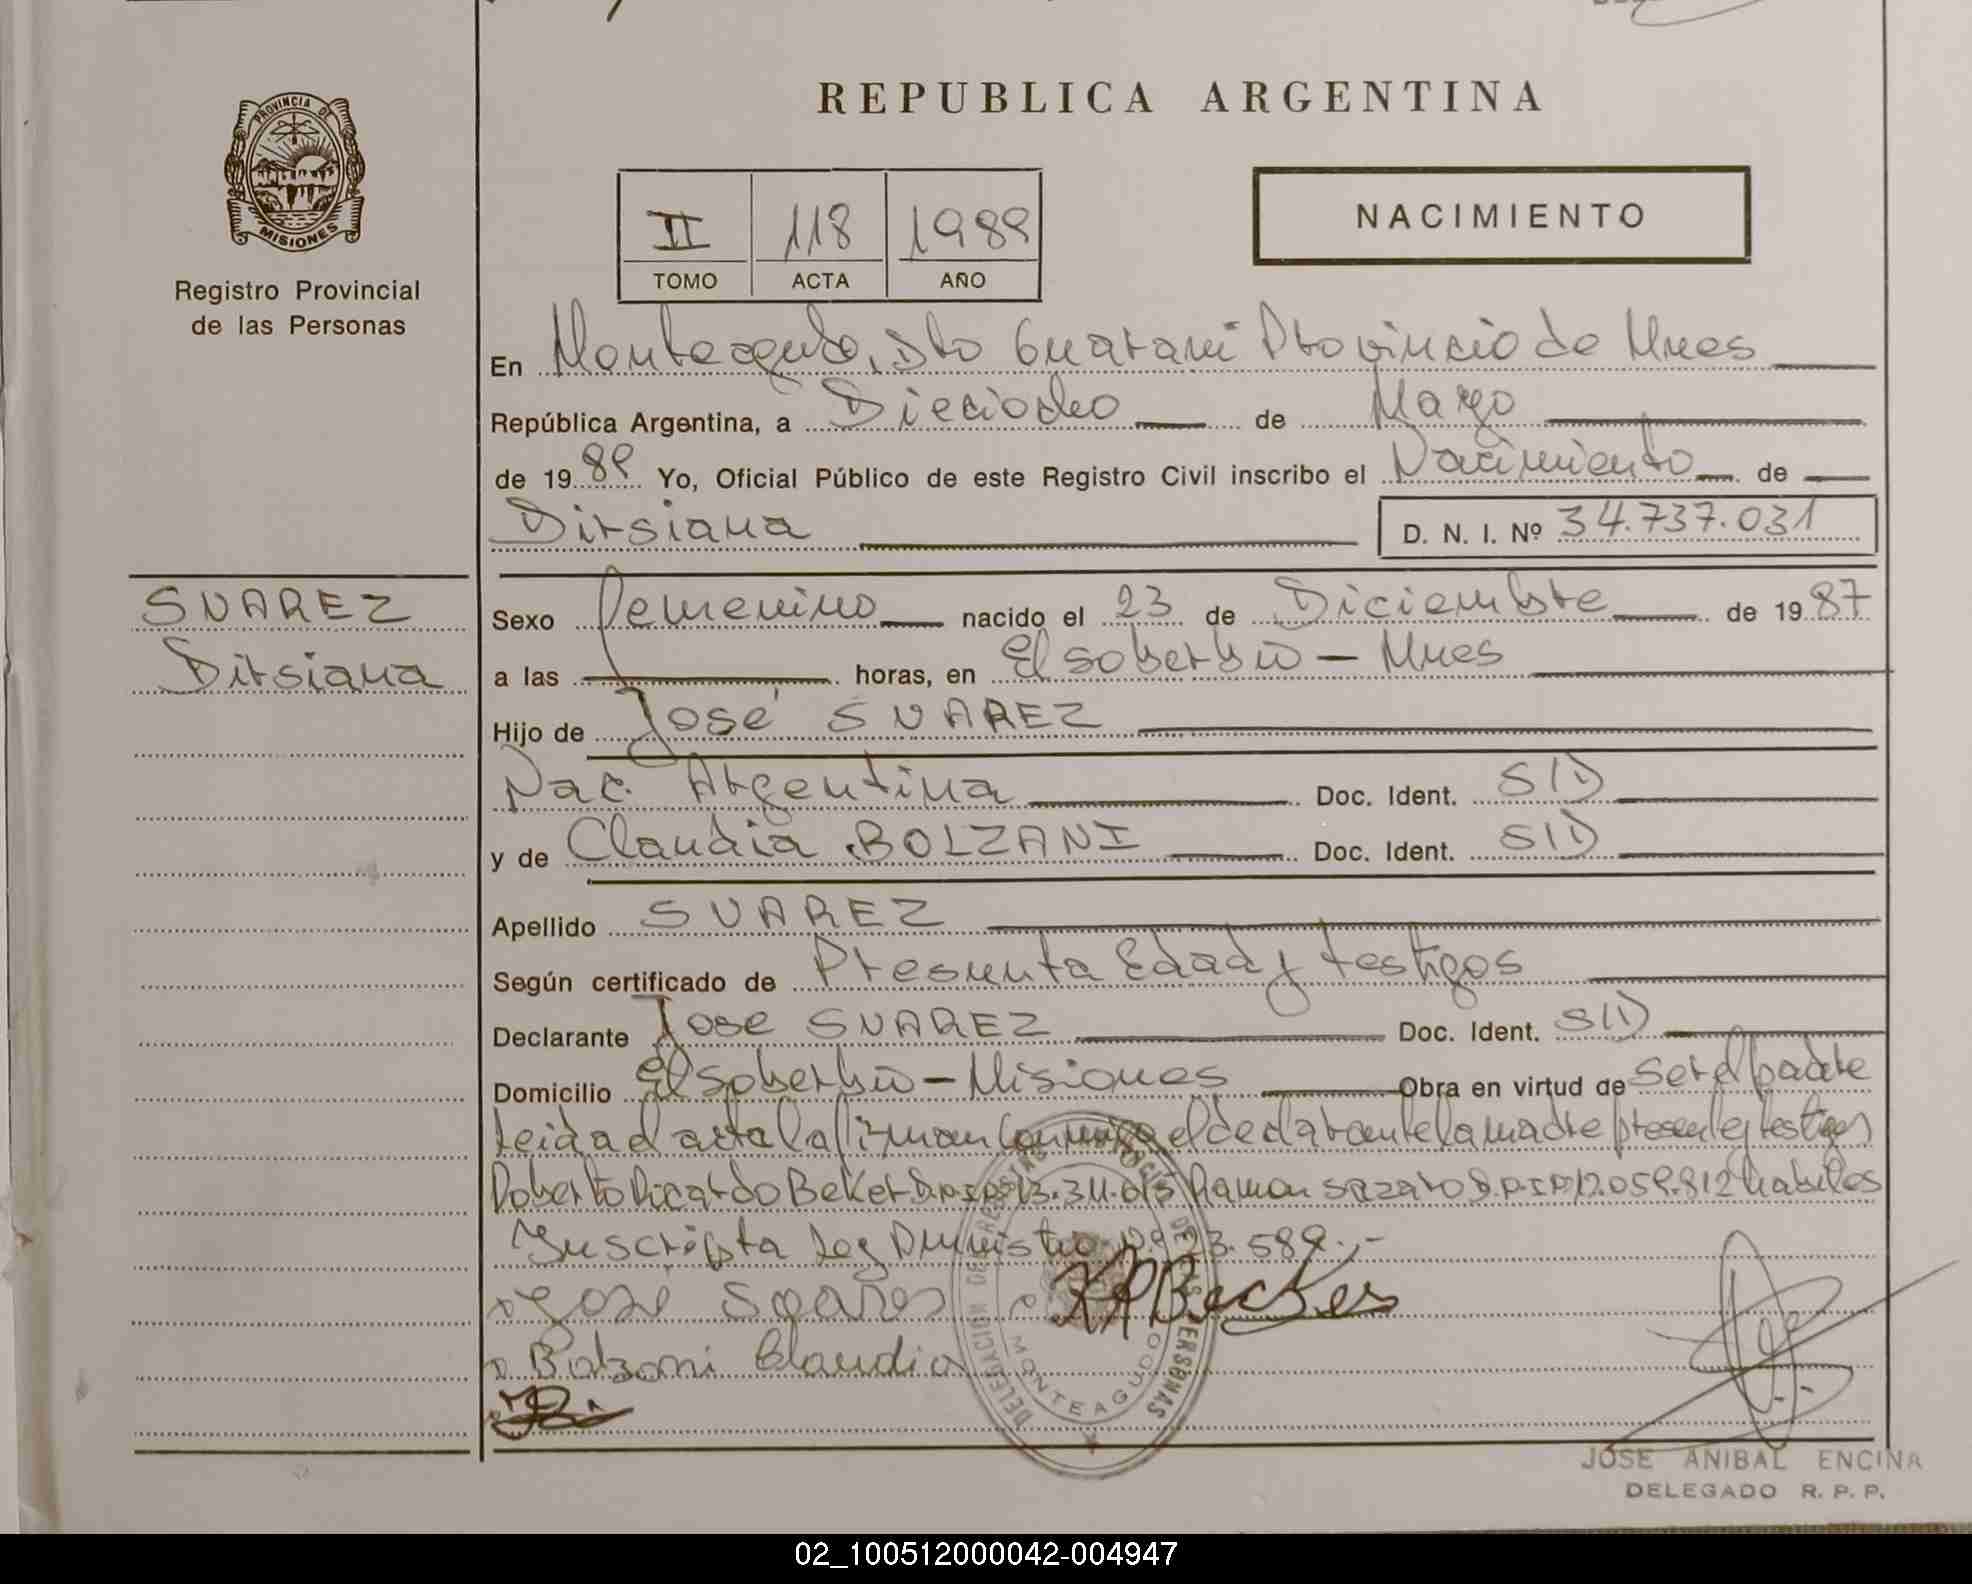 REPUBLICA ARGENTINA
PROVINCIA DE
MISIONES
Registro Provincial
de las Personas
II 118 1989
TOMO ACTA AÑO
NACIMIENTO
En Monteagudo, Dto Guarani Provincia de Mnes
República Argentina, a Dieciocho de Mayo
de 1989 Yo, Oficial Público de este Registro Civil inscribo el Nacimiento de
Dirsiana D. N. I. Nº 34.737.031
SUAREZ
Dirsiana
Sexo Femenino nacido el 23 de Diciembre de 1987
a las horas, en El soberbio - Mnes
Hijo de José SUAREZ
Nac. Argentina Doc. Ident. S/D
y de Claudia BOLZANI Doc. Ident. S/D
Apellido SUAREZ
Según certificado de Presunta Edad y testigos
Declarante José SUAREZ Doc. Ident. S/D
Domicilio El soberbio - Misiones Obra en virtud de ser el padre
Leida el acta la firman conmigo el declarante la madre presente y testigos
Roberto Ricardo Beker Ramon 12.059.812 habiles
Ley
José Soares RABecker
Bolzani Claudia
DELEGACION DE REGISTRO DE LAS PERSONAS
MONTEAGUDO
JOSE ANIBAL ENCINA
DELEGADO R. P. P.
02_100512000042-004947